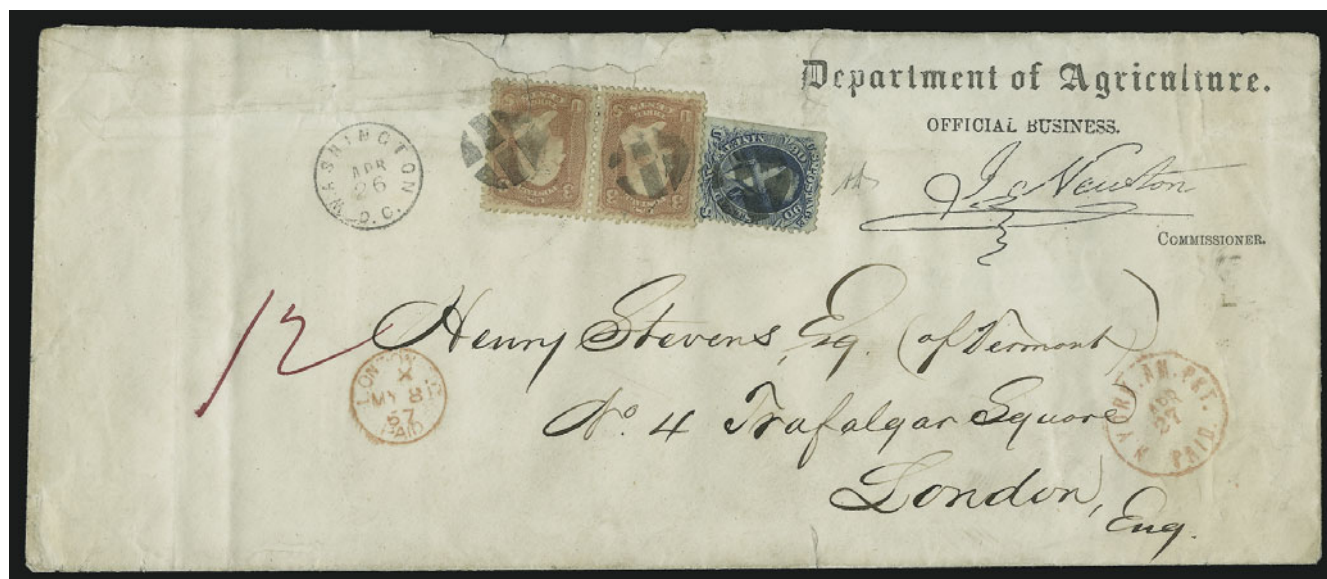 Department of Agriculture.
OFFICIAL BUSINESS.
J. Newton
COMMISSIONER.
WASHINGTON
APR
26
D.C.
12
Henry Stevens, Esq. (of Vermont)
No. 4 Trafalgar Square
London,
Eng.
LONDON
X
MY 8
67
PAID
N YORK. AM. PKT.
APR
27
PAID.
U.S. POSTAGE
90